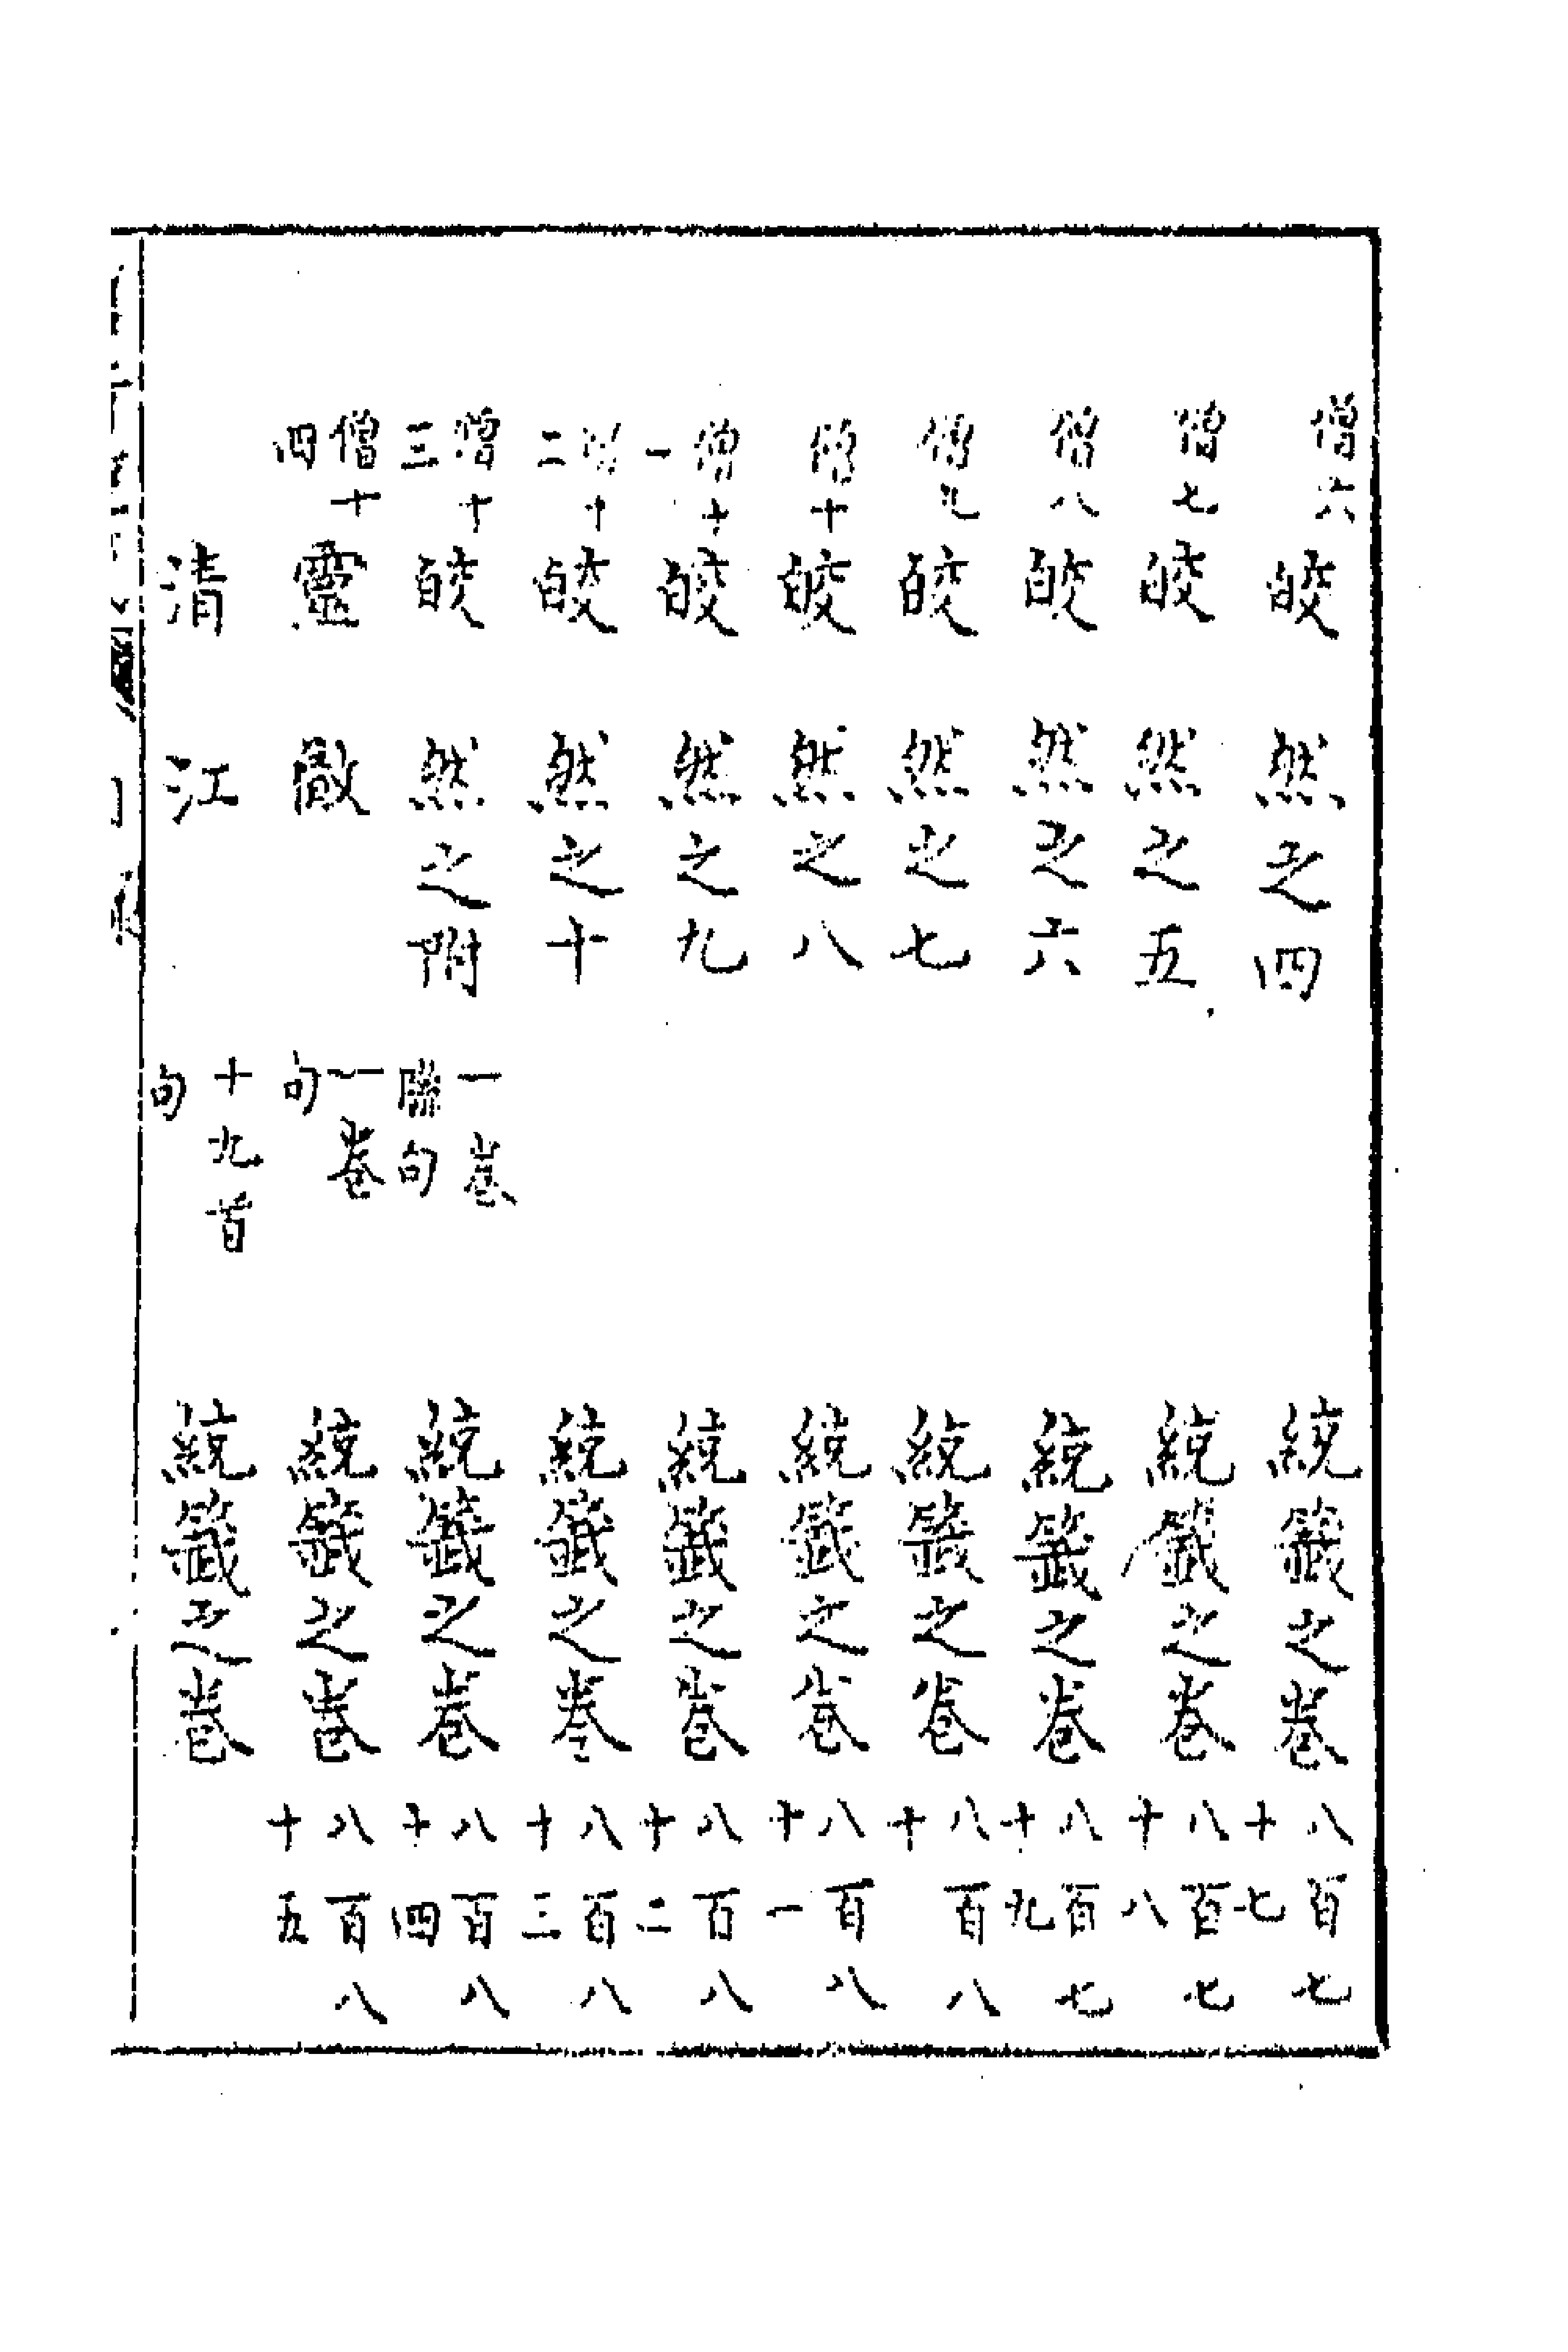 僧六皎然之四統籤之卷八百七十七
僧七皎然之五統籤之卷八百七十八
僧八皎然之六統籤之卷八百七十九
僧九皎然之七統籤之卷八百八十
僧十皎然之八統籤之卷八百八十一
僧十一皎然之九統籤之卷八百八十二
僧十二皎然之十統籤之卷八百八十三
僧十三皎然之附一卷聯句統籤之卷八百八十四
僧十四靈徹一卷句統籤之卷八百八十五
清江十九首句統籤之卷